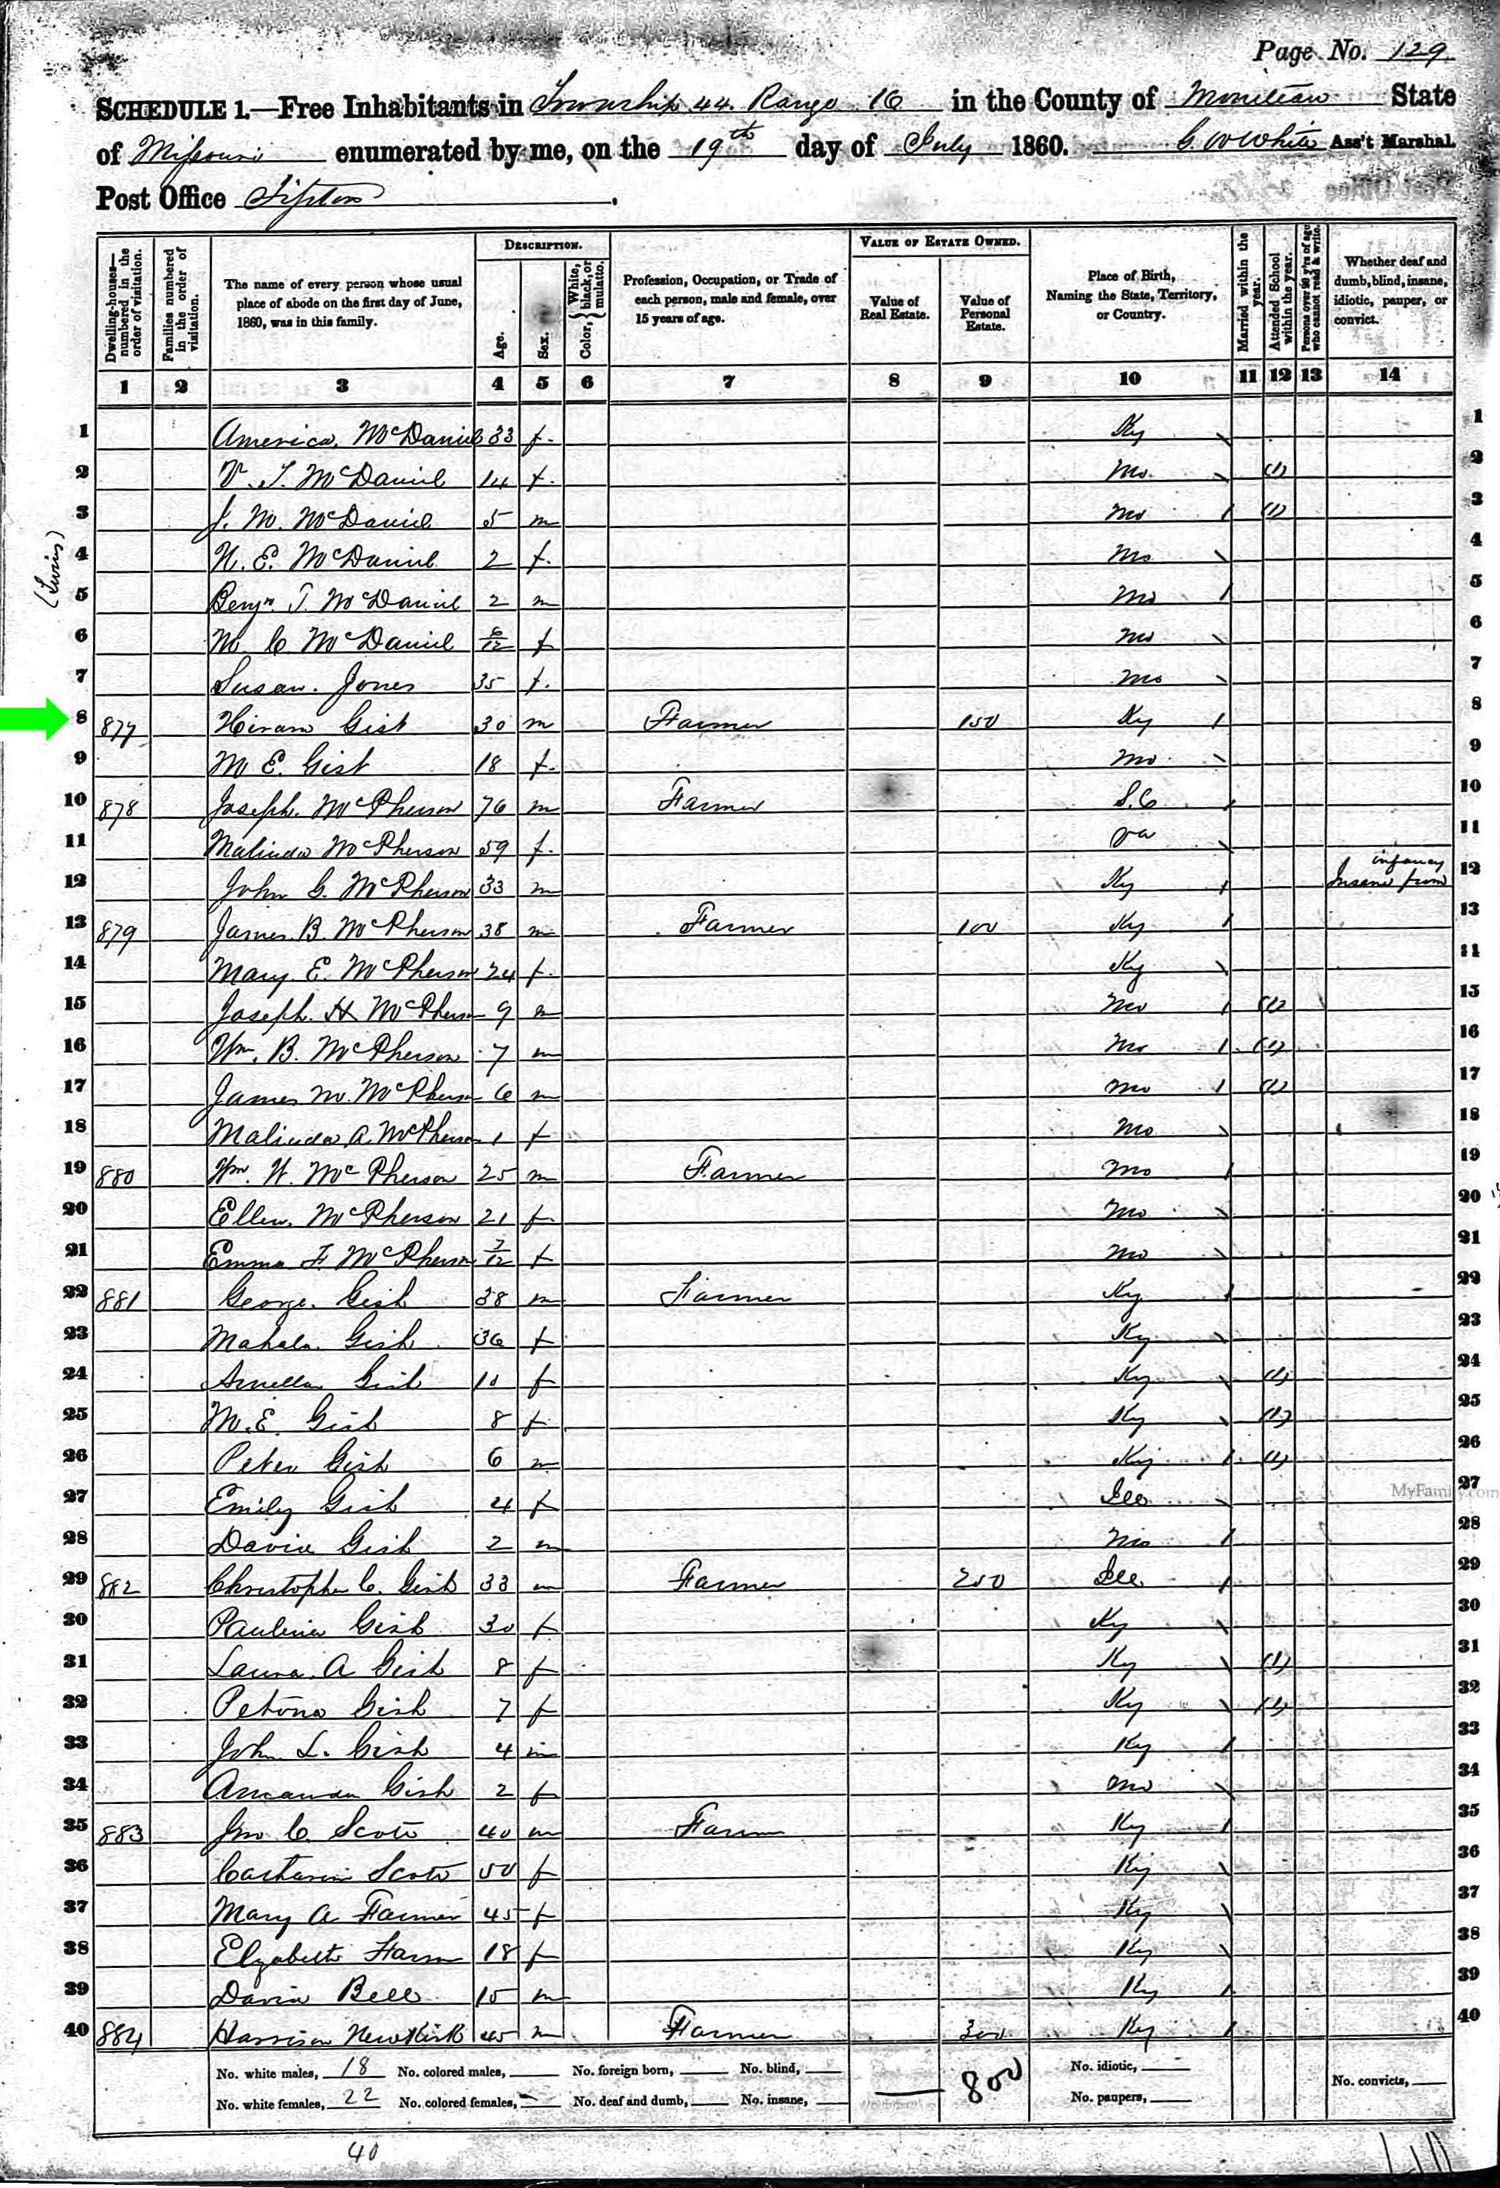 Page No. 129
SCHEDULE 1.—Free Inhabitants in Township 44. Range 16 in the County of Moniteau State
of Missouri enumerated by me, on the 19th day of July 1860. G. W White Ass't Marshal.
Post Office Tipton.
Dwelling-houses—numbered in the order of visitation. Families numbered in the order of visitation. The name of every person whose usual place of abode on the first day of June, 1860, was in this family. DESCRIPTION. Age. Sex. Color, { White, black, or mulatto. Profession, Occupation, or Trade of each person, male and female, over 15 years of age. VALUE OF ESTATE OWNED. Value of Real Estate. Value of Personal Estate. Place of Birth, Naming the State, Territory, or Country. Married within the year. Attended School within the year. Persons over 20 y'rs of age who cannot read & write. Whether deaf and dumb, blind, insane, idiotic, pauper, or convict.
1 2 3 4 5 6 7 8 9 10 11 12 13 14
1 America McDaniel 33 f. Ky 1
2 V. T. McDaniel 14 f. Mo (1) 2
3 J. M. McDaniel 5 m Mo (1) 3
4 N. E. McDaniel 2 f. Mo 4
(Twins)
5 Benjn T. McDaniel 2 m Mo 5
6 M. C McDaniel 6/12 f Mo 6
7 Susan. Jones 35 f. Mo 7
8 877 Hiram Gish 30 m Farmer 150 Ky 8
9 M E. Gish 18 f. Mo 9
10 878 Joseph. McPherson 76 m Farmer S.C 10
11 Malinda McPherson 59 f. Va 11
12 John G. McPherson 33 m Ky Insane from infancy 12
13 879 James. B. McPherson 38 m Farmer 100 Ky 13
14 Mary. E. McPherson 24 f. Ky 14
15 Joseph. H McPherson 9 m Mo (1) 15
16 Wm. B. McPherson 7 m Mo (1) 16
17 James M. McPherson 6 m Mo (1) 17
18 Malinda A. McPherson 1 f Mo 18
19 880 Wm. W. McPherson 25 m Farmer Mo 19
20 Ellen. McPherson 21 f Mo 20
21 Emma F. McPherson 7/12 f Mo 21
22 881 George. Gish 38 m Farmer Ky 22
23 Mahala. Gish 36 f Ky 23
24 Gish 10 f Ky (1) 24
25 M. E. Gish 8 f Ky (1) 25
26 Peter Gish 6 m Ky (1) 26
27 Emily Gish 4 f Ill 27
MyFamily.com
28 David Gish 2 m Mo 28
29 882 Christopher C. Gish 33 m Farmer 250 Ill 29
30 Paulina Gish 30 f Ky 30
31 Laura. A Gish 8 f Ky (1) 31
32 Gish 7 f Ky (1) 32
33 John L. Gish 4 m Ky 33
34 Amanda Gish 2 f Mo 34
35 883 Jno C. Scott 40 m Farmer Ky 35
36 Scott 50 f Ky 36
37 Mary A Farmer 45 f Ky 37
38 Elizabeth Farmer 18 f Ky 38
39 David Bell 15 m Ky 39
40 884 Harrison Newkirk 45 m Farmer 300 Ky 40
No. white males, 18 No. colored males, No. foreign born, No. blind, 800 No. idiotic,
No. white females, 22 No. colored females, No. deaf and dumb, No. insane, No. paupers, No. convicts,
40